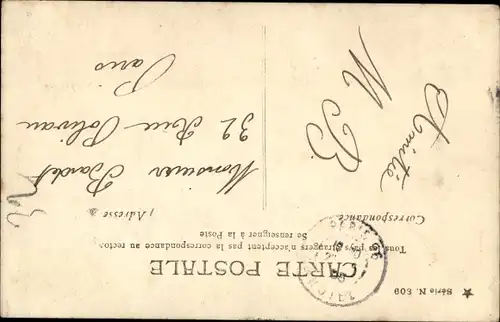 CARTE POSTALE
Tous les pays étrangers n'acceptent pas la correspondance au recto.
Se renseigner à la Poste
Correspondance
Adresse
Amitié
M B
Monsieur Bardet
32 Rue Poliveau
Paris
★ Série N. 809
PARIS